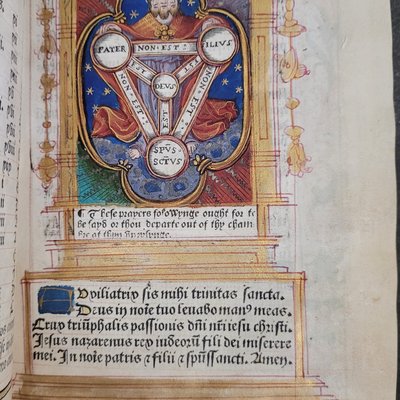 PATER NON EST FILIUS
EST EST
DEUS
NON EST EST NON EST
SPŪS
SCTUS
¶ These prayers folowynge ought for to
be sayd or thou departe out of thy cham
bre at thyn vprysynge.
Auxiliatrix sis mihi trinitas sancta.
Deus in noīe tuo levabo manꝰ meas.
Crux triūphalis passionis dn̄i nr̄i iesu christi
Jesus nazarenus rex iudeorū fili dei miserere
mei. In noīe patris ⁊ filii ⁊ spūssancti. Amen.